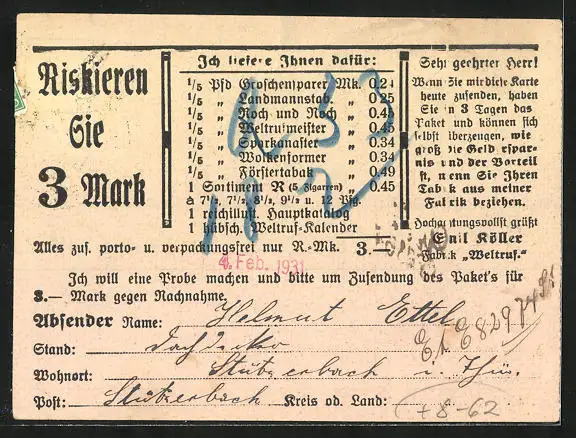 Riskieren
Sie
3 Mark
Ich liefere Ihnen dafür:
1/5 Pfd Groschensparer Mk. 0.24
1/5 „ Landmannstab. „ 0.25
1/5 „ Noch und Noch „ 0.45
1/5 „ Weltrufmeister „ 0.45
1/5 „ Sparkanaster „ 0.34
1/5 „ Wolkenformer „ 0.34
1/5 „ Förstertabak „ 0.49
1 Sortiment R (5 Zigarren) „ 0.45
à 7½, 7½, 8½, 9½ u. 12 Pfg.
1 rechillust. Hauptkatalog
1 hübsch. Weltruf-Kalender
Alles zus. porto- u. verpackungsfrei nur R.-Mk. 3.—
Sehr geehrter Herr!
Wenn Sie mir diese Karte
heute zusenden, haben
Sie in 3 Tagen das
Paket und können sich
selbst überzeugen, wie
groß die Geldersparnis
und der Vorteil
ist, wenn Sie Ihren
Tabak aus meiner
Fabrik beziehen.
Hochachtungsvollst grüßt
Emil Köller
Fabrik „Weltruf“.
4. Feb. 1931
Ich will eine Probe machen und bitte um Zusendung des Paket's für
3.— Mark gegen Nachnahme.
Absender Name: Helmut Ettel
Stand:
Wohnort: Stützerbach i. Thür.
Post: Stützerbach Kreis od. Land:
+8-62